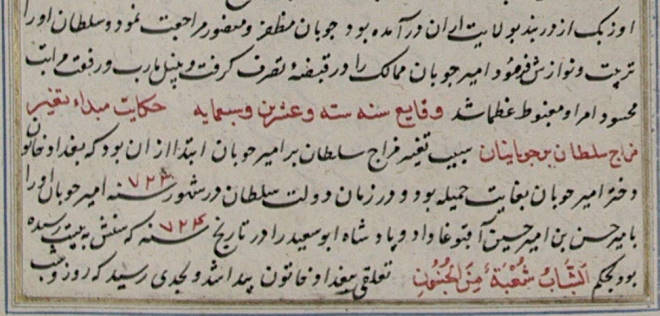 اوزبک از دربند بولایت اران در آمده بود و جوبان مظفر و منصور مراجعت نمود و سلطان اورا
تربیت و نوازش فرمود امیر جوبان ممالک را در قبضهٔ تصرف گرفت و بنیل مارب و رفعت مراتب
محسود امرا و مغبوط عظما شد وقایع سنه سته و عشرین و سبعمایه حکایت مبداء تغیر
مزاج سلطان بر جوبانیان سبب تغیر مزاج سلطان بر امیر جوبان ابتدا از ان بود که بغداد خاتون
دختر امیر جوبان بغایت جمیله بود و در زمان دولت سلطان در شهور سنه ۷۲۳ امیر جوبان اورا
بامیر حسن بن امیر حسین آقبوغا داد و پادشاه ابو سعید را در تاریخ سنه که سنش به بیست رسیده
بود بحکم الشَّبابُ شُعْبَةٌ مِنَ الجُنُونِ تعلقی ببغداد خاتون پیدا شد و بحدی رسید که روز و شب